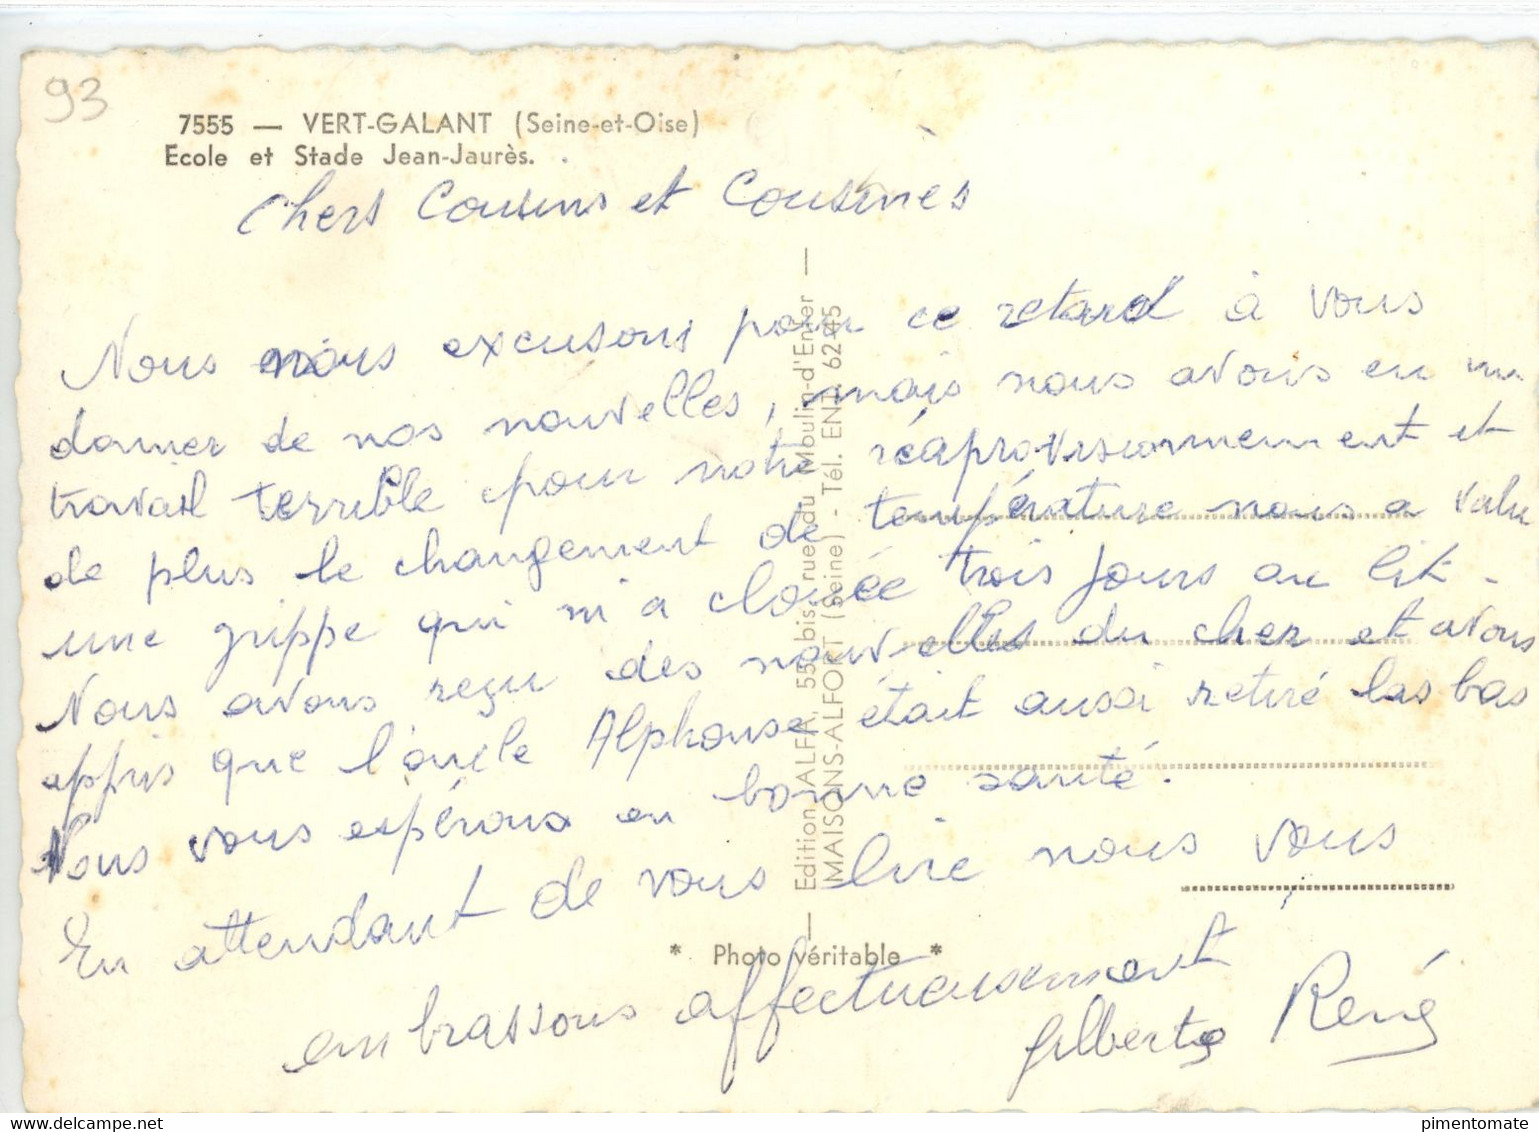 93
7555 — VERT-GALANT (Seine-et-Oise)
Ecole et Stade Jean-Jaurès.
Chers Cousins et Cousines
Nous nous excusons pour ce retard à vous
donner de nos nouvelles, mais nous avons eu un
travail terrible pour notre réaprovisionnement et
de plus le changement de température nous a valu
une grippe qui m'a clouée trois jours au lit.
Nous avons reçu des nouvelles du cher et avons
appris que l'oncle Alphonse était aussi retiré las bas
Nous vous espérons en bonne santé.
En attendant de vous lire nous vous
embrassons affectueusement
Gilberte René
— Edition ALFA, 55 bis, rue du Moulin-d'Enfer —
MAISONS-ALFORT (Seine) - Tél. ENT. 62-45
* Photo véritable *
www.delcampe.net
pimentomate